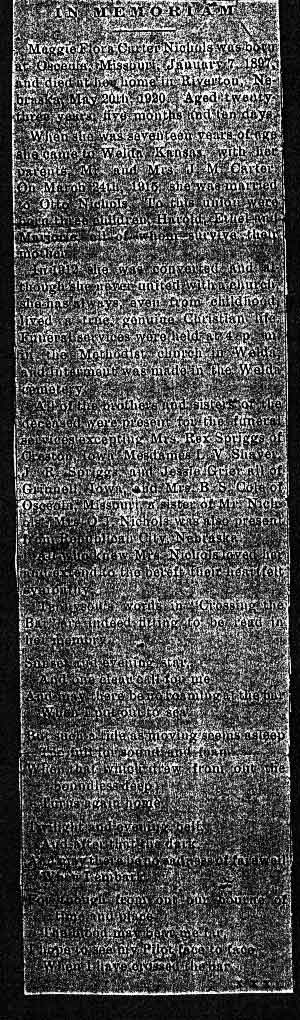 IN MEMORIAM
Maggie Flora Carter Nichols was born
at Osceola, Missouri, January 7, 1897,
and died at her home in Riverton, Ne-
braska, May 20th, 1920. Aged twenty-
three years, five months and ten days.
When she was seventeen years of age
she came to Welda, Kansas, with her
parents, Mr. and Mrs. J. M. Carter.
On March 24th, 1915, she was married
to Otto Nichols. To this union were
born three children, Harold, Ethel and
all of whom survive their
mother.
In 1912 she was converted and al-
though she never united with a church,
she has always, even from childhood,
lived a true, genuine Christian life.
Funeral services were held at 4 p. m.
in the Methodist church in Welda,
and interment was made in the Welda
cemetery.
All of the brothers and sisters of the
deceased were present for the funeral
services excepting Mrs. Rex Spriggs of
Creston, Iowa, Mesdames L. V. Shaver,
J. R. Spriggs and Jessie Grier all of
Grinnell, Iowa, and Mrs. B. S. Cole of
Osceola, Missouri, a sister of Mr. Nich-
ols. Mrs. O. T. Nichols was also present
from Republican City, Nebraska.
All who knew Mrs. Nichols loved her
and extend to the bereft their heartfelt
sympathy.
Tennyson's words in "Crossing the
Bar" are indeed fitting to be read in
her memory.
Sunset and evening star,
And one clear call for me!
And may there be no moaning at the bar,
When I put out to sea.
But such a tide as moving seems asleep,
Too full for sound and foam,
When that which drew from out the
boundless deep
Turns again home.
Twilight and evening bell,
And after that the dark!
And may there be no sadness of farewell
When I embark.
For though from out our bourne of
time and place
The flood may bear me far,
I hope to see my Pilot face to face
When I have crossed the bar.